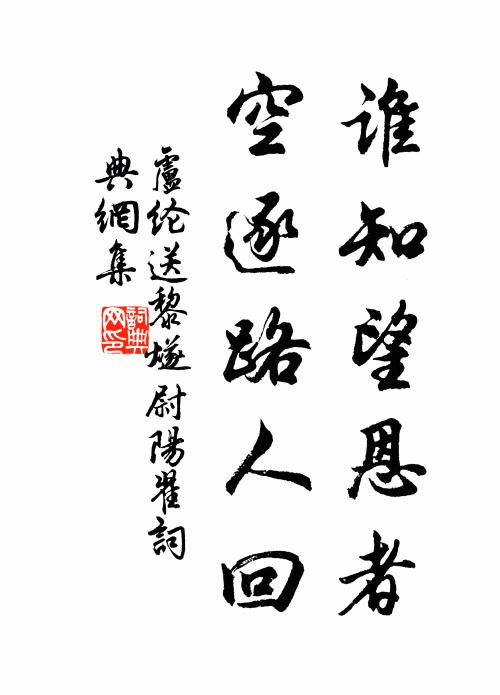 谁知望恩者
空逐路人回
盧纶送黎燧尉陽翟詞
典網集
詞典
网印